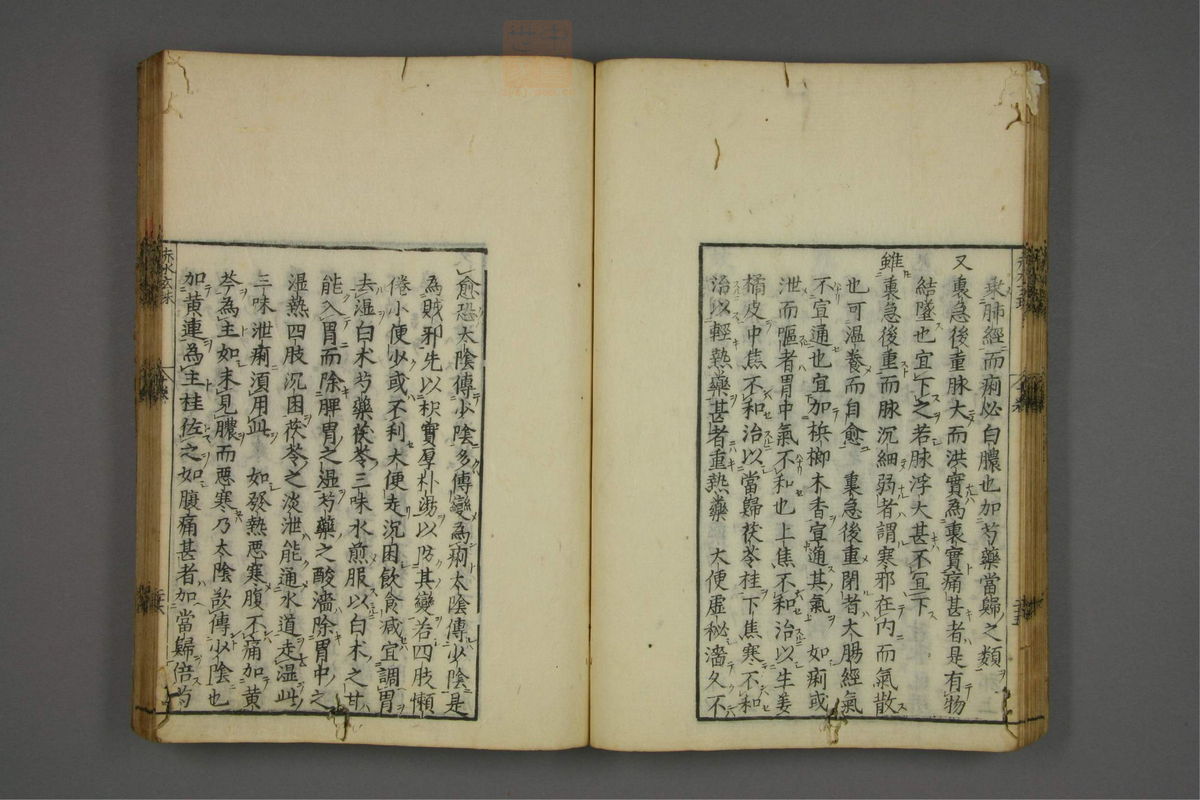 乗肺經而痢必白膿也加芍藥當歸之類
又裏急後重脉大而洪實為裏實痛甚者是有物
結墜也宜下之若脉浮大甚不宜下
雖裏急後重而脉沉細弱者謂寒邪在内而氣散
也可温養而自愈 裏急後重閉者大腸經氣
不宣通也宜加梹榔木香宣通其氣 如痢或
泄而嘔者胃中氣不和也上焦不和治以生姜
橘皮中焦不和治以當歸茯苓桂下焦寒不和
治以輕熱藥甚者重熱藥 大便虚秘濇久不
愈恐太陰傳少陰多傳變為痢太陰傳少陰是
為賊邪先以枳實厚朴以防其變若四肢懶
倦小便少或不利大便走沉困飲食減宜調胃
去湿白朮芍藥茯苓三味水煎服以白朮之甘
能入胃而除脾胃之湿芍藥之酸濇除胃中之
湿熱四肢沉困茯苓之淡泄能通水道走湿此
三味泄痢須用此 如發熱悪寒腹不痛加黄
芩為主如未見膿而悪寒乃太陰欲傳少陰也
加黄連為主桂佐之如腹痛甚者加當歸倍芍
赤水玄珠